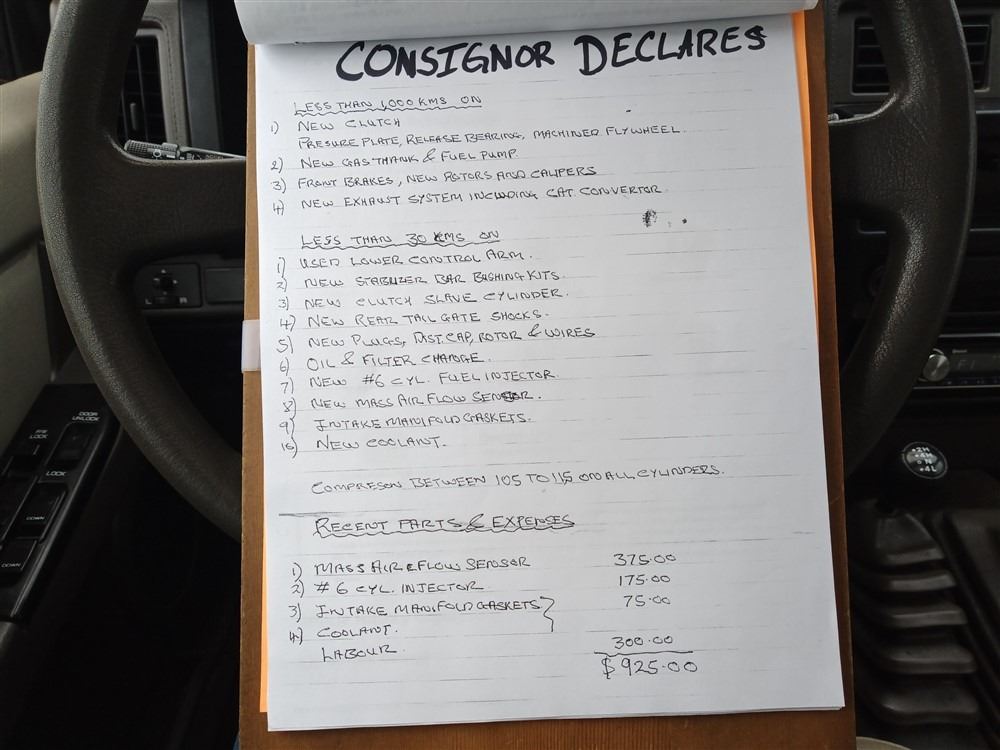 CONSIGNOR DECLARES
LESS THAN 1,000 KMS ON
1) NEW CLUTCH
PRESURE PLATE, RELEASE BEARING, MACHINED FLYWHEEL.
2) NEW GAS THANK & FUEL PUMP
3) FRONT BRAKES, NEW ROTORS AND CALIPERS
4) NEW EXHAUST SYSTEM INCLUDING CAT. CONVERTOR.
LESS THAN 30 KMS ON
1) USED LOWER CONTROL ARM.
2) NEW STABLIZER BAR BUSHING KITS.
3) NEW CLUTCH SLAVE CYLINDER.
4) NEW REAR TAIL GATE SHOCKS.
5) NEW PLUGS, DIST. CAP, ROTOR & WIRES
6) OIL & FILTER CHANGE.
7) NEW #6 CYL. FUEL INJECTOR.
8) NEW MASS AIR FLOW SENSOR.
9) INTAKE MANIFOLD GASKETS.
10) NEW COOLANT.
COMPRESON BETWEEN 105 TO 115 ON ALL CYLINDERS.
RECENT PARTS & EXPENSES
1) MASS AIR FLOW SENSOR 375.00
2) #6 CYL. INJECTOR 175.00
3) INTAKE MANIFOLD GASKETS } 75.00
4) COOLANT.
LABOUR 300.00
$925.00
DOOR
UNLOCK
LOCK
P/W
LOCK
DOWN
DOWN
L R
2H
4L